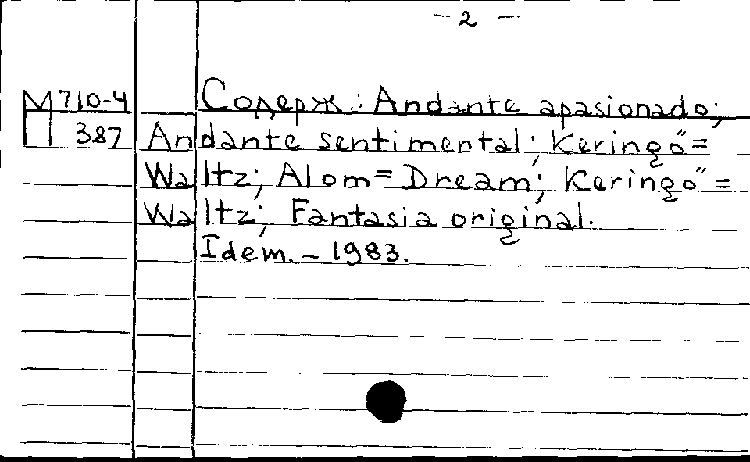 — 2 —
М710-4 Содерж: Andante apasionado;
387 Andante sentimental; Keringő =
Waltz; Alom = Dream; Keringő =
Waltz; Fantasia original.
Idem. – 1983.